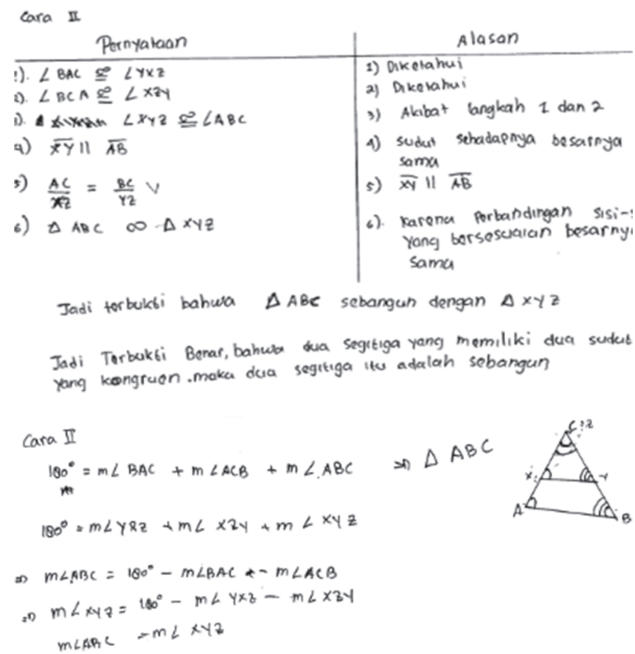 Cara II
Pernyataan | Alasan
1). ∠ BAC ≅ ∠ YXZ | 1) Diketahui
2). ∠ BCA ≅ ∠ XZY | 2) Diketahui
3). ∠ XYZ ≅ ∠ ABC | 3) Akibat langkah 1 dan 2
4) XY || AB | 4) Sudut sehadapnya besarnya sama
5) AC/XZ = BC/YZ | 5) XY || AB
6) Δ ABC ∞ Δ XYZ | 6). Karena Perbandingan sisi-
yang bersesuaian besarny
sama
Jadi terbukti bahwa Δ ABC sebangun dengan Δ XYZ
Jadi Terbukti Benar, bahwa dua segitiga yang memiliki dua sudut
yang kongruen. maka dua segitiga itu adalah sebangun
Cara II
180° = m∠ BAC + m∠ACB + m∠.ABC ⇒ Δ ABC
180° = m∠YXZ + m∠ XZY + m∠ XYZ
⇒ m∠ABC = 180° - m∠BAC - m∠ACB
⇒ m∠XYZ = 180° - m∠ YXZ - m∠XZY
m∠ABC = m∠ XYZ
C=Z
X
Y
A
B